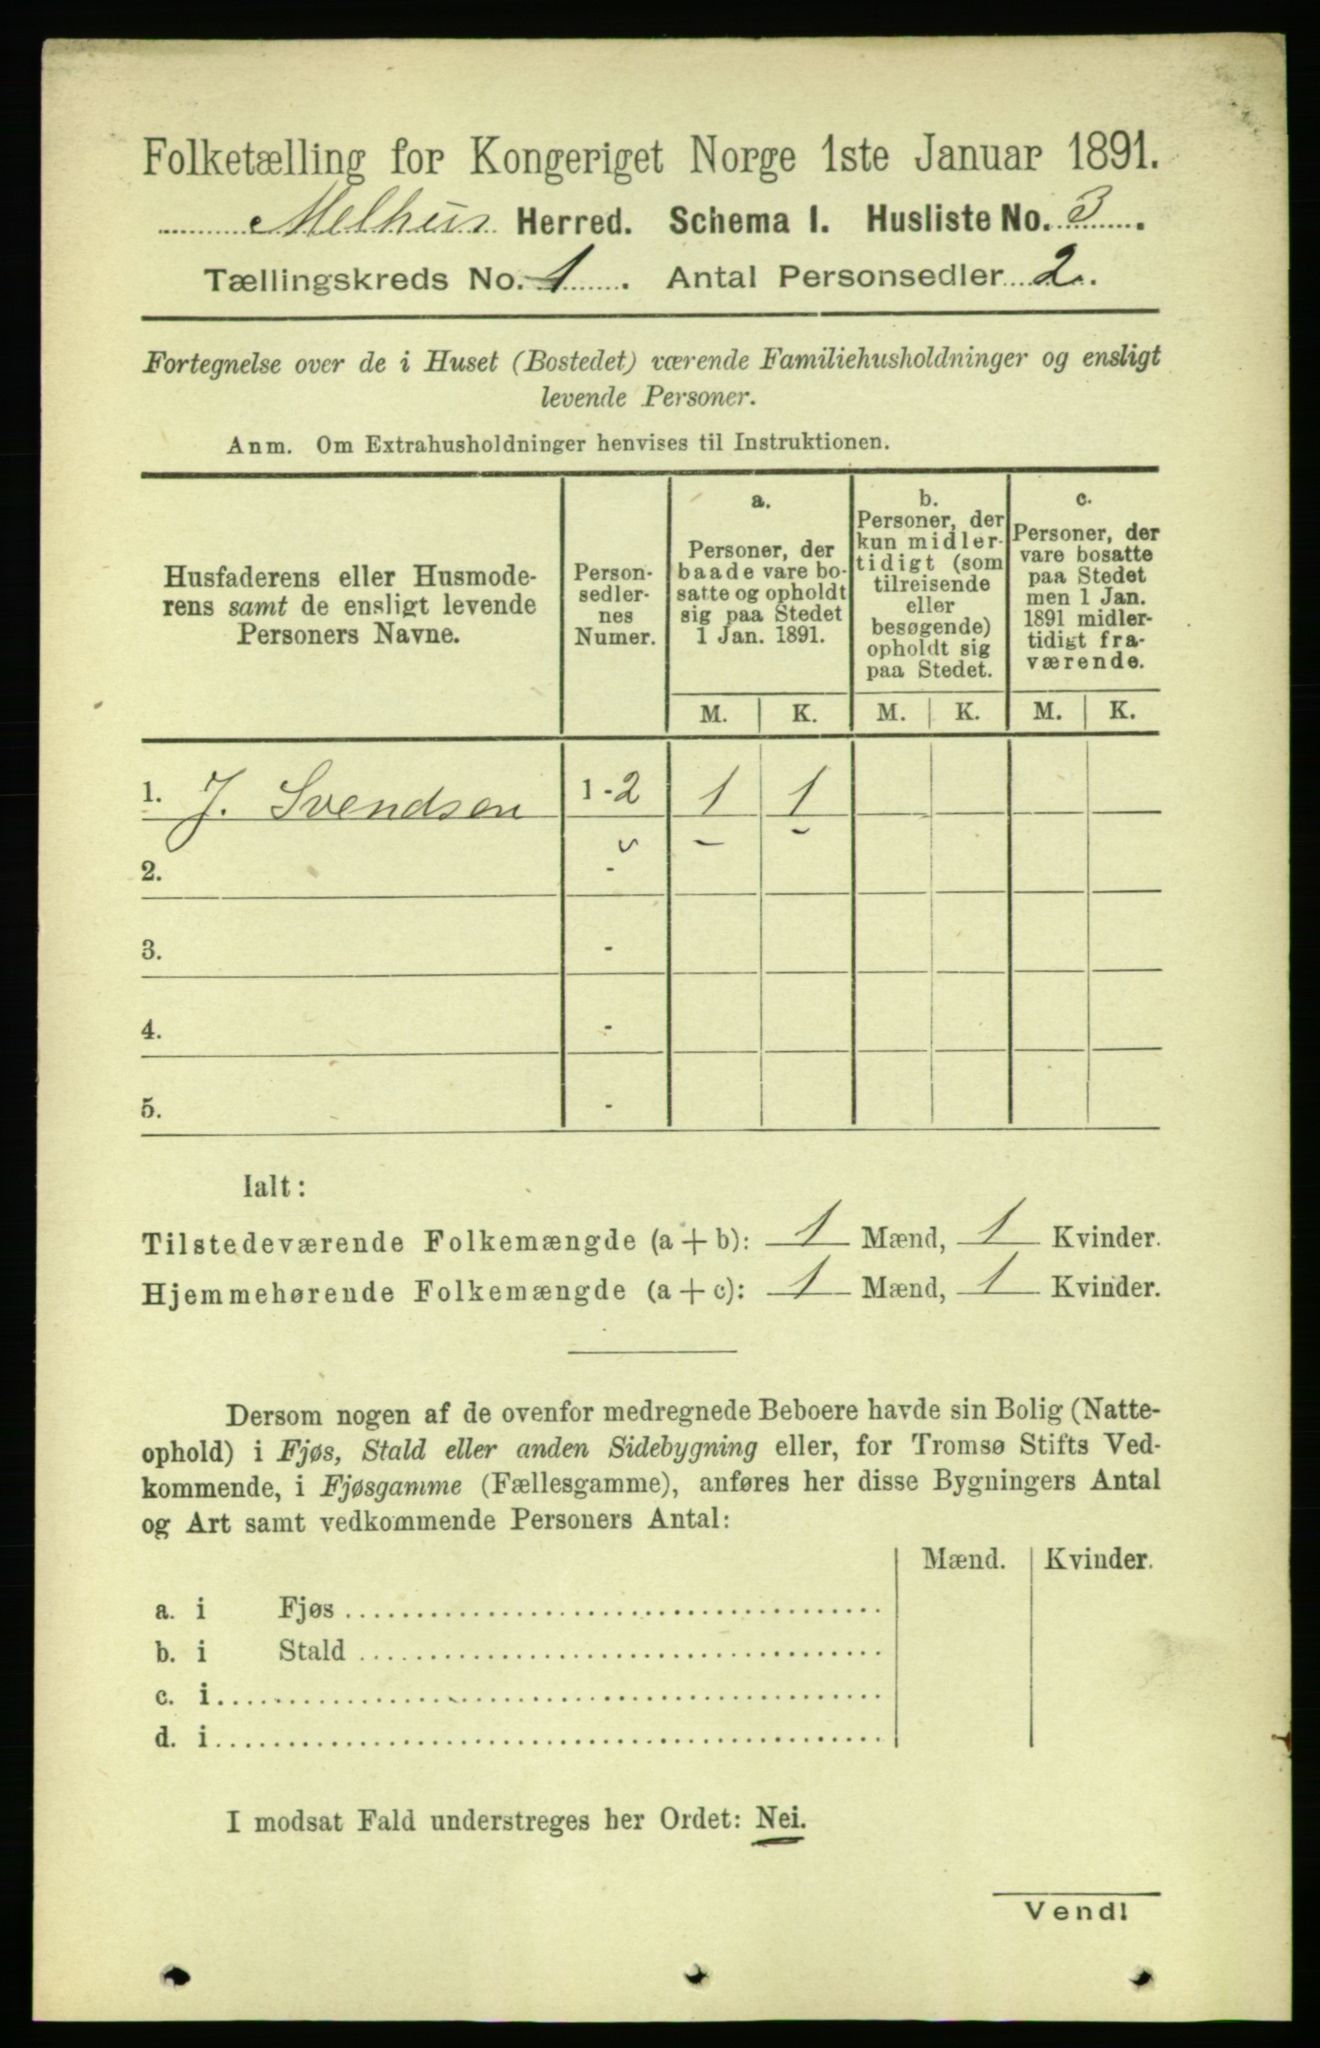 Folketælling for Kongeriget Norge 1ste Januar 1891.
Melhus Herred. Schema I. Husliste No. 3.
Tællingskreds No. 1. Antal Personsedler 2.
Fortegnelse over de i Huset (Bostedet) værende Familiehusholdninger og ensligt
levende Personer.
Anm. Om Extrahusholdninger henvises til Instruktionen.
Husfaderens eller Husmode-
rens samt de ensligt levende
Personers Navne.
Person-
sedler-
nes
Numer.
a.
Personer, der
baade vare bo-
satte og opholdt
sig paa Stedet
1 Jan. 1891.
b.
Personer, der
kun midler-
tidigt (som
tilreisende
eller
besøgende)
opholdt sig
paa Stedet.
c.
Personer, der
vare bosatte
paa Stedet
men 1 Jan.
1891 midler-
tidigt fra-
værende.
M. K. M. K. M. K.
1. J. Svendsen 1-2 1 1
2. -
3. -
4. -
5. -
Ialt:
Tilstedeværende Folkemængde (a + b): 1 Mænd, 1 Kvinder.
Hjemmehørende Folkemængde (a + c): 1 Mænd, 1 Kvinder.
Dersom nogen af de ovenfor medregnede Beboere havde sin Bolig (Natte-
ophold) i Fjøs, Stald eller anden Sidebygning eller, for Tromsø Stifts Ved-
kommende, i Fjøsgamme (Fællesgamme), anføres her disse Bygningers Antal
og Art samt vedkommende Personers Antal:
Mænd. Kvinder.
a. i Fjøs
b. i Stald
c. i
d. i
I modsat Fald understreges her Ordet: Nei.
Vend!